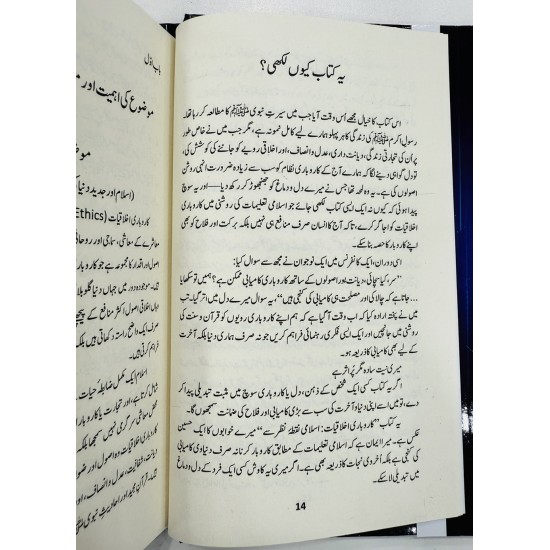 یہ کتاب کیوں لکھی؟
اس کتاب کا خیال مجھے اُس وقت آیا جب میں سیرتِ نبوی ﷺ کا مطالعہ کر رہا تھا۔
رسولِ اکرم ﷺ کی زندگی کا ہر پہلو ہمارے لیے کامل نمونہ ہے، مگر جب میں نے خاص طور
پر اُن کی تجارتی زندگی، دیانت داری، عدل و انصاف، اور اخلاقی رویے کو جاننے کی کوشش کی،
تو دل گواہی دینے لگا کہ ہمارے آج کے کاروباری نظام کو سب سے زیادہ ضرورت انہی روشن
اصولوں کی ہے۔ یہ وہ لمحہ تھا جس نے میرے دل و دماغ کو جھنجھوڑ کر رکھ دیا—اور یہ سوچ
پیدا ہوئی کہ کیوں نہ ایک ایسی کتاب لکھی جائے جو اسلامی تعلیمات کی روشنی میں کاروباری
اخلاقیات کو اجاگر کرے، تاکہ آج کا انسان صرف منافع ہی نہیں بلکہ برکت اور فلاح کو بھی
اپنے کاروبار کا حصہ بنا سکے۔
اسی دوران، ایک کانفرنس میں ایک نوجوان نے مجھ سے سوال کیا:
"سر، کیا سچائی، دیانت، اور اصولوں کے ساتھ کاروباری کامیابی ممکن ہے؟ ہمیں تو سکھایا
جاتا ہے کہ چالاکی اور مصلحت ہی کامیابی کی کنجی ہیں"... یہ سوال میرے دل میں اتر گیا۔ تب
میں نے پختہ ارادہ کیا کہ اب وقت آ گیا ہے کہ ہم اپنے کاروباری رویوں کو قرآن و سنت کی
روشنی میں جانچیں، اور ایک ایسی فکری رہنمائی فراہم کریں جو نہ صرف دنیا بلکہ آخرت
کے لیے بھی کامیابی کا ذریعہ ہو۔
میری نیت سادہ مگر پُر اثر ہے
اگر یہ کتاب کسی ایک شخص کے ذہن، دل یا کاروباری سوچ میں مثبت تبدیلی پیدا کر
دے، تو میں اسے اپنی دنیا و آخرت کی سب سے بڑی کامیابی اور فلاح کی ضمانت سمجھوں گا۔
یہ کتاب "کاروباری اخلاقیات: اسلامی نقطۂ نظر سے" — میرے خوابوں کا ایک حسین
عکس ہے۔ میرا ایمان ہے کہ اسلامی تعلیمات کے مطابق کاروبار کرنا نہ صرف دنیاوی کامیابی
کی کنجی ہے، بلکہ اُخروی نجات کا ذریعہ بھی ہے۔ اگر میری یہ کاوش کسی ایک فرد کے دل و دماغ
میں تبدیلی لا سکے۔
14
باب اوّل
موضوع کی اہمیت اور
موضو
(اسلام اور جدید دنیا
کاروباری اخلاقیات (Ethics
معاشرے کے معاشی، سماجی اور روحانی
اصول اور اقدار کا مجموعہ ہے، جو
ہیں۔ موجودہ دور میں جہاں دنیا گلوبلا
وہاں اخلاقی اصول اکثر منافع کے پیچھے
صرف ایک واضح راستہ دکھاتی ہیں بلکہ
فراہم کرتی ہیں۔
اسلام ایک مکمل ضابطۂ حیات